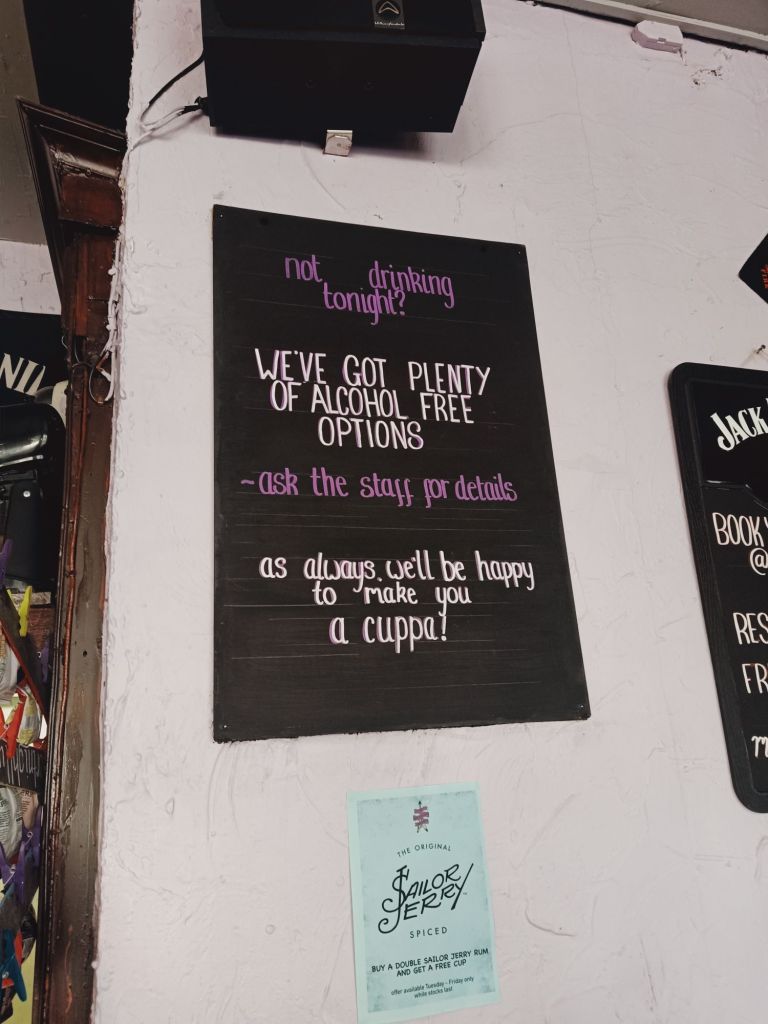 not drinking
tonight?
WE'VE GOT PLENTY
OF ALCOHOL FREE
OPTIONS
~ask the staff for details
as always, we'll be happy
to make you
a cuppa!
THE ORIGINAL
SAILOR
JERRY
SPICED
BUY A DOUBLE SAILOR JERRY RUM
AND GET A FREE CUP
offer available Tuesday - Friday only
while stocks last
JACK
BOOK
@
RES
FR